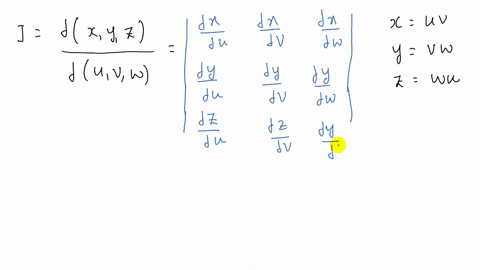 J = d(x,y,z) / d(u,v,w) = | dx/du dx/dV dx/dw |
dy/du dy/dV dy/dw
dz/du dz/dV dy/d
x = uv
y = vw
z = wu